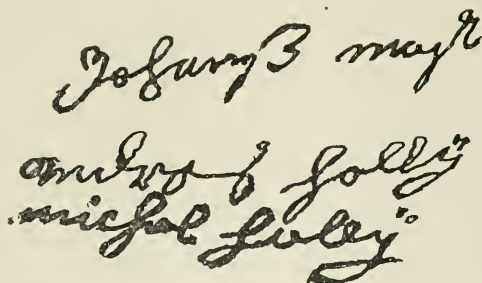 Johannß mayr
andreas holly
michel holey